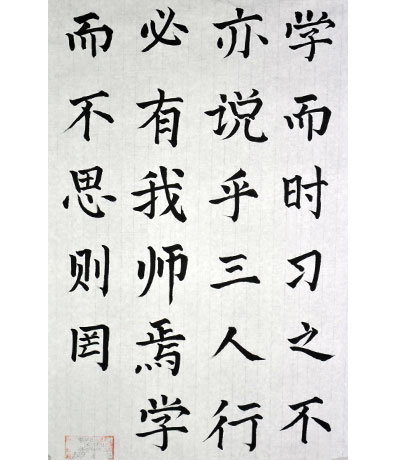 学而时习之不
亦说乎三人行
必有我师焉学
而不思则罔